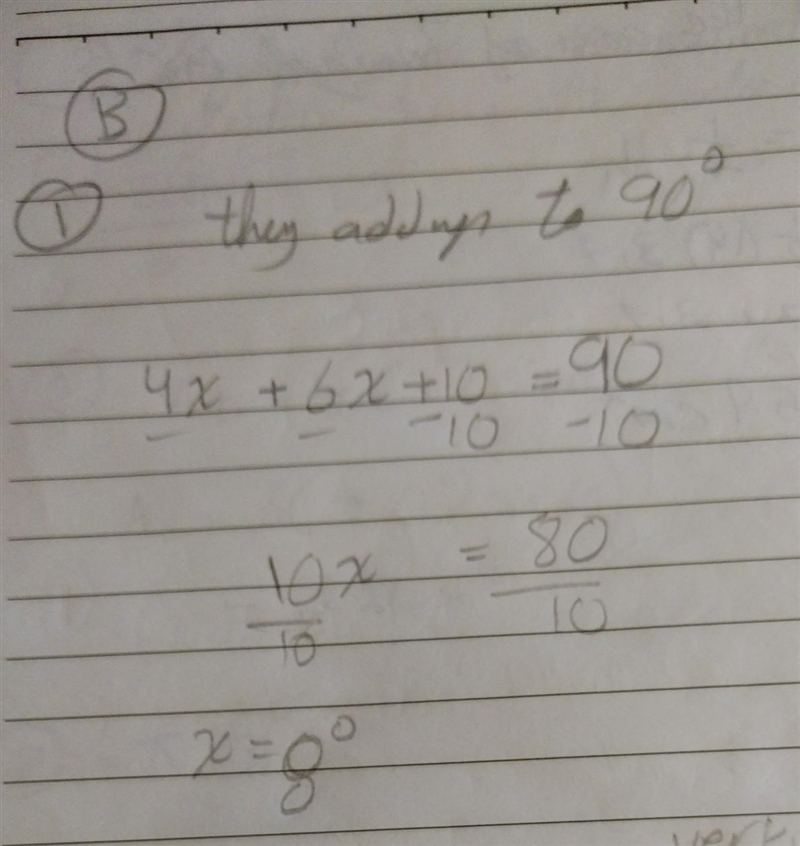 B
1 they addups to 90°
4x + 6x + 10 = 90
-10 -10
10x = 80
10 10
x = 8°